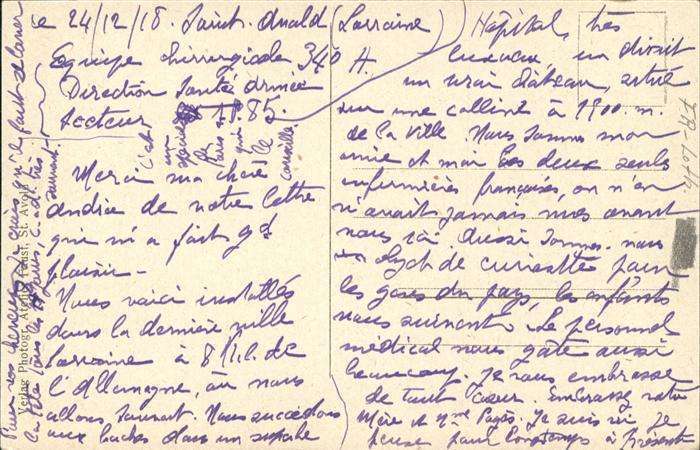 Le 24/12/18. Saint-Avold (Lorraine)
Equipe chirurgicale 340 A.
Direction Santé armée
Secteur 85.
c'est
qui
le
Merci ma chère
Andrée de votre lettre
qui m'a fait gd
plaisir —
Nous voici installés
dans la dernière ville
Lorraine à 8 Kil. de
l'Allemagne, où nous
allons souvent. Nous succédons
aux boches dans un superbe
Hôpital, très
luxueux on dirait
un vrai château, situé
sur une colline à 1900. m.
de la ville Nous sommes mon
amie et moi les deux seules
infirmières françaises, on n'en
n'avait jamais vues avant
nous ici. Aussi sommes-nous
objet de curiosité pour
les gens du pays, les enfants
nous suivent. Le personnel
médical nous gâte aussi
beaucoup. Je vous embrasse
de tout cœur. Embrassez votre
Mère et Mme Pagès. Je suis ici je
pense pour longtemps à présent
Pour vos cheveux je crois qu'il faut se laver
la tête tous les jours, c. à d. très
souvent.
Verlag Photogr. Atelier Faust, St. Avold